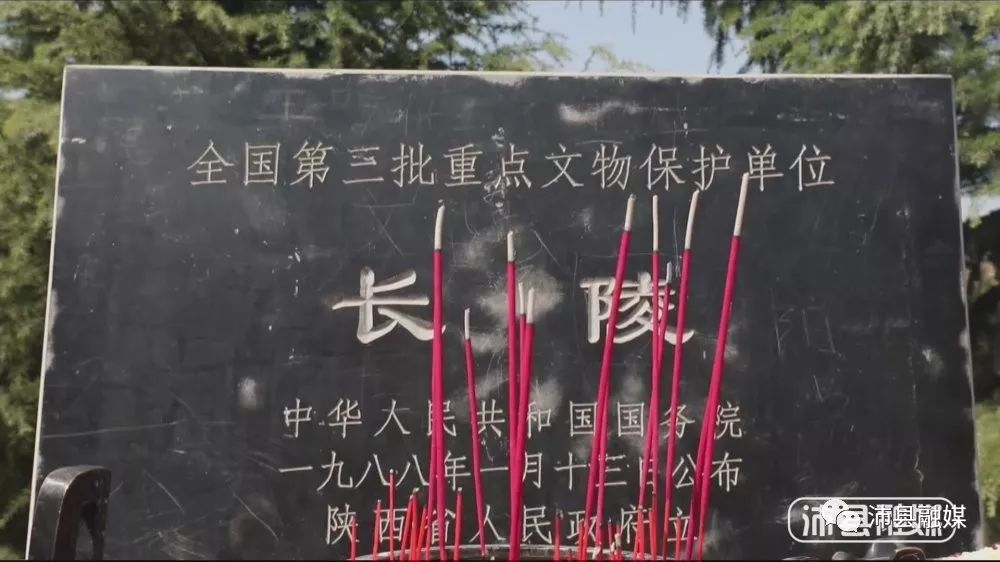 全国第三批重点文物保护单位
长陵
中华人民共和国国务院
一九八八年一月十三日公布
陕西省人民政府立
沛县融媒